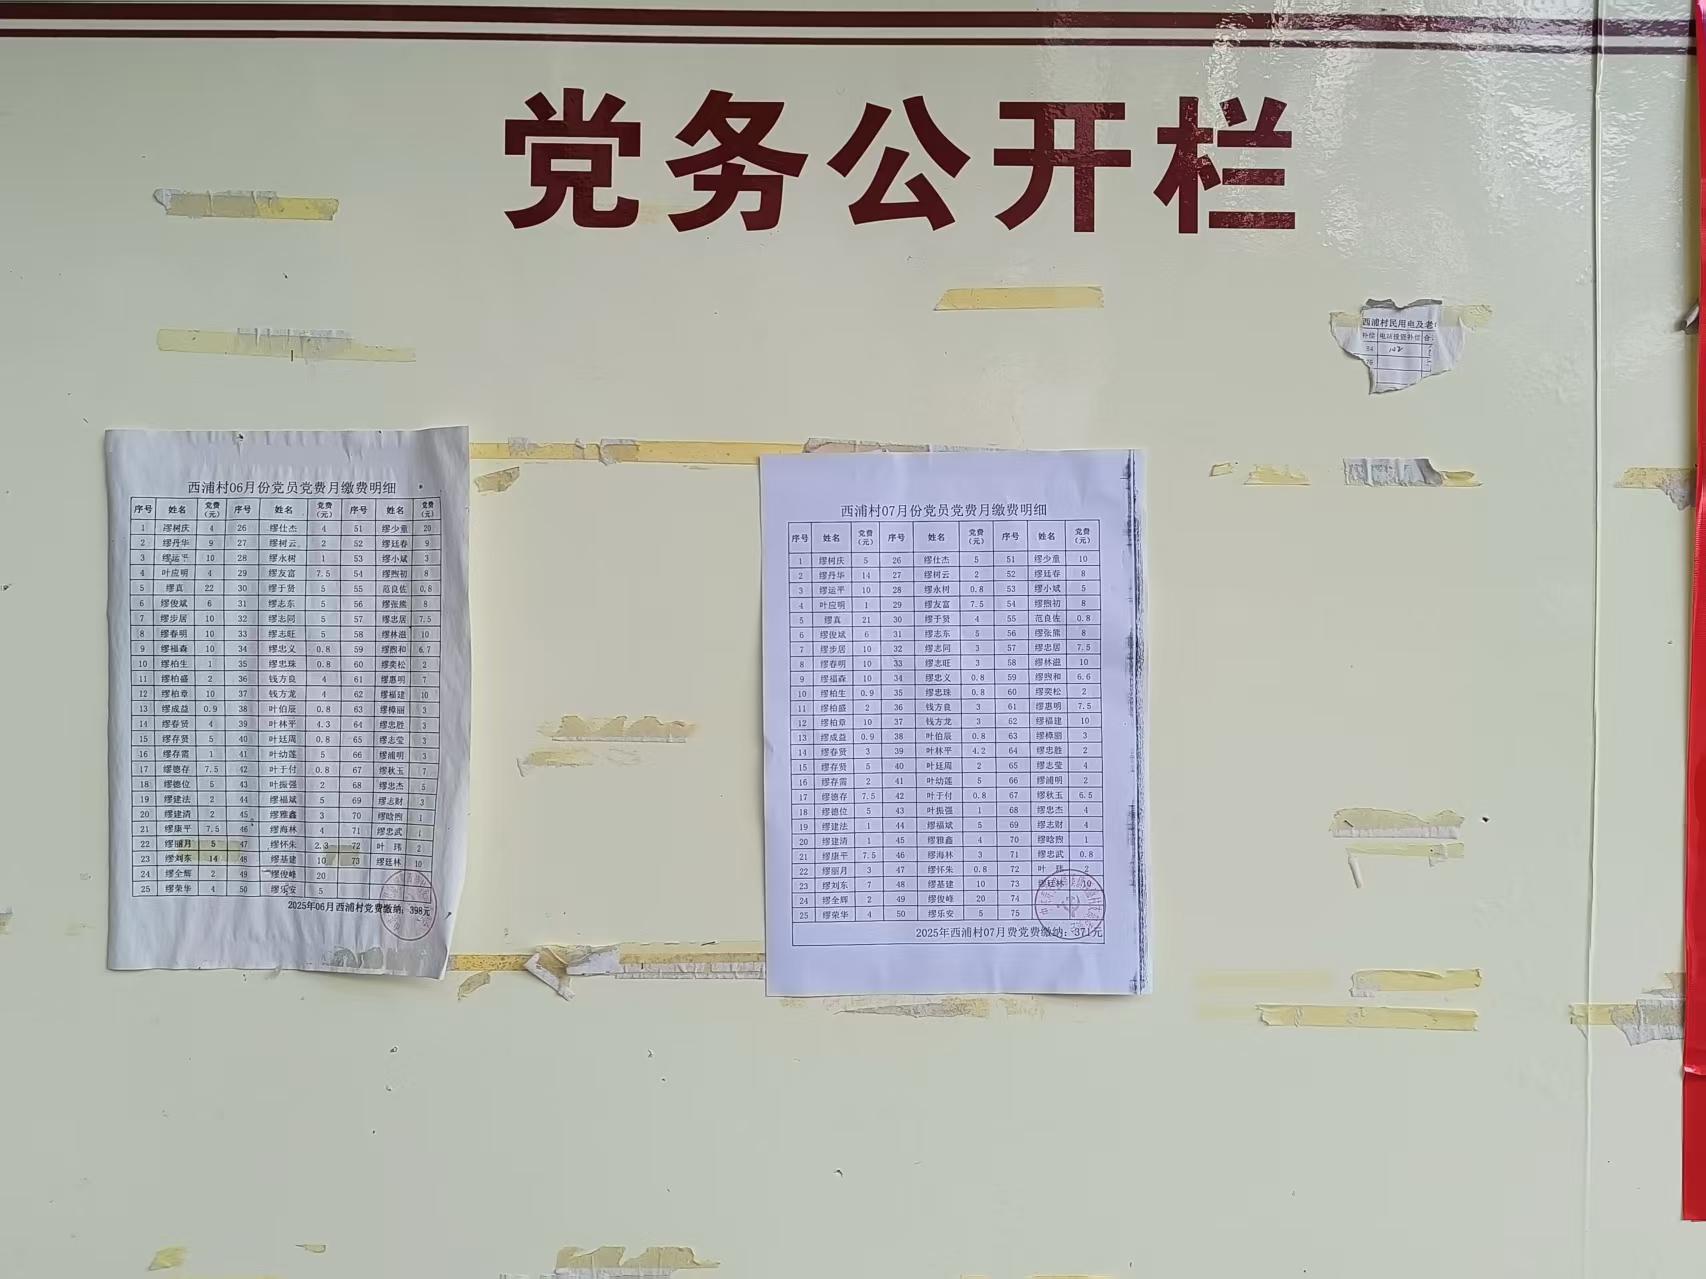 党务公开栏
西浦村民用电及老
补偿 电站接资补偿 合
西浦村06月份党员党费月缴费明细
序号 姓名 党费(元) 序号 姓名 党费(元) 序号 姓名 党费(元)
1 缪树庆 4 26 缪仕杰 4 51 缪少童 20
2 缪丹华 9 27 缪树云 2 52 缪廷春 9
3 缪运平 10 28 缪永树 1 53 缪小斌 3
4 叶应明 4 29 缪友富 7.5 54 缪煦初 8
5 缪真 22 30 缪于贤 5 55 范良佐 0.8
6 缪俊斌 6 31 缪志东 5 56 缪张熊 8
7 缪步居 10 32 缪志同 5 57 缪忠居 7.5
8 缪春明 10 33 缪志旺 5 58 缪林滋 10
9 缪福森 10 34 缪忠义 0.8 59 缪煦和 6.7
10 缪柏生 1 35 缪忠珠 0.8 60 缪奕松 2
11 缪柏盛 2 36 钱方良 4 61 缪惠明 7
12 缪柏章 10 37 钱方龙 4 62 缪福建 10
13 缪成益 0.9 38 叶伯辰 0.8 63 缪樟丽 3
14 缪春贤 4 39 叶林平 4.3 64 缪忠胜 3
15 缪存贤 5 40 叶廷周 0.8 65 缪志莹 3
16 缪存需 1 41 叶幼莲 5 66 缪浦明 3
17 缪德存 7.5 42 叶于付 0.8 67 缪秋玉 7
18 缪德位 5 43 叶振强 2 68 缪忠杰 5
19 缪建法 2 44 缪福斌 5 69 缪志财 3
20 缪建清 2 45 缪雅鑫 3 70 缪晗煦 1
21 缪康平 7.5 46 缪海林 4 71 缪忠武 1
22 缪丽月 5 47 缪怀朱 2.3 72 叶 玮 2
23 缪刘东 14 48 缪基建 10 73 缪廷林 10
24 缪全辉 2 49 缪俊峰 20
25 缪荣华 4 50 缪乐安 5
2025年06月西浦村党费缴纳：398元
西浦村07月份党员党费月缴费明细
序号 姓名 党费(元) 序号 姓名 党费(元) 序号 姓名 党费(元)
1 缪树庆 5 26 缪仕杰 5 51 缪少童 10
2 缪丹华 14 27 缪树云 2 52 缪廷春 8
3 缪运平 10 28 缪永树 0.8 53 缪小斌 5
4 叶应明 1 29 缪友富 7.5 54 缪煦初 8
5 缪真 21 30 缪于贤 4 55 范良佐 0.8
6 缪俊斌 6 31 缪志东 5 56 缪张熊 8
7 缪步居 10 32 缪志同 3 57 缪忠居 7.5
8 缪春明 10 33 缪志旺 3 58 缪林滋 10
9 缪福森 10 34 缪忠义 0.8 59 缪煦和 6.6
10 缪柏生 0.9 35 缪忠珠 0.8 60 缪奕松 2
11 缪柏盛 2 36 钱方良 3 61 缪惠明 7.5
12 缪柏章 10 37 钱方龙 3 62 缪福建 10
13 缪成益 0.9 38 叶伯辰 0.8 63 缪樟丽 3
14 缪春贤 3 39 叶林平 4.2 64 缪忠胜 2
15 缪存贤 5 40 叶廷周 2 65 缪志莹 4
16 缪存需 2 41 叶幼莲 5 66 缪浦明 2
17 缪德存 7.5 42 叶于付 0.8 67 缪秋玉 6.5
18 缪德位 5 43 叶振强 1 68 缪忠杰 4
19 缪建法 1 44 缪福斌 5 69 缪志财 4
20 缪建清 1 45 缪雅鑫 4 70 缪晗煦 1
21 缪康平 7.5 46 缪海林 3 71 缪忠武 0.8
22 缪丽月 3 47 缪怀朱 0.8 72 叶 玮 2
23 缪刘东 7 48 缪基建 10 73 缪廷林 10
24 缪全辉 2 49 缪俊峰 20 74
25 缪荣华 4 50 缪乐安 5 75
2025年西浦村07月费党费缴纳：371元